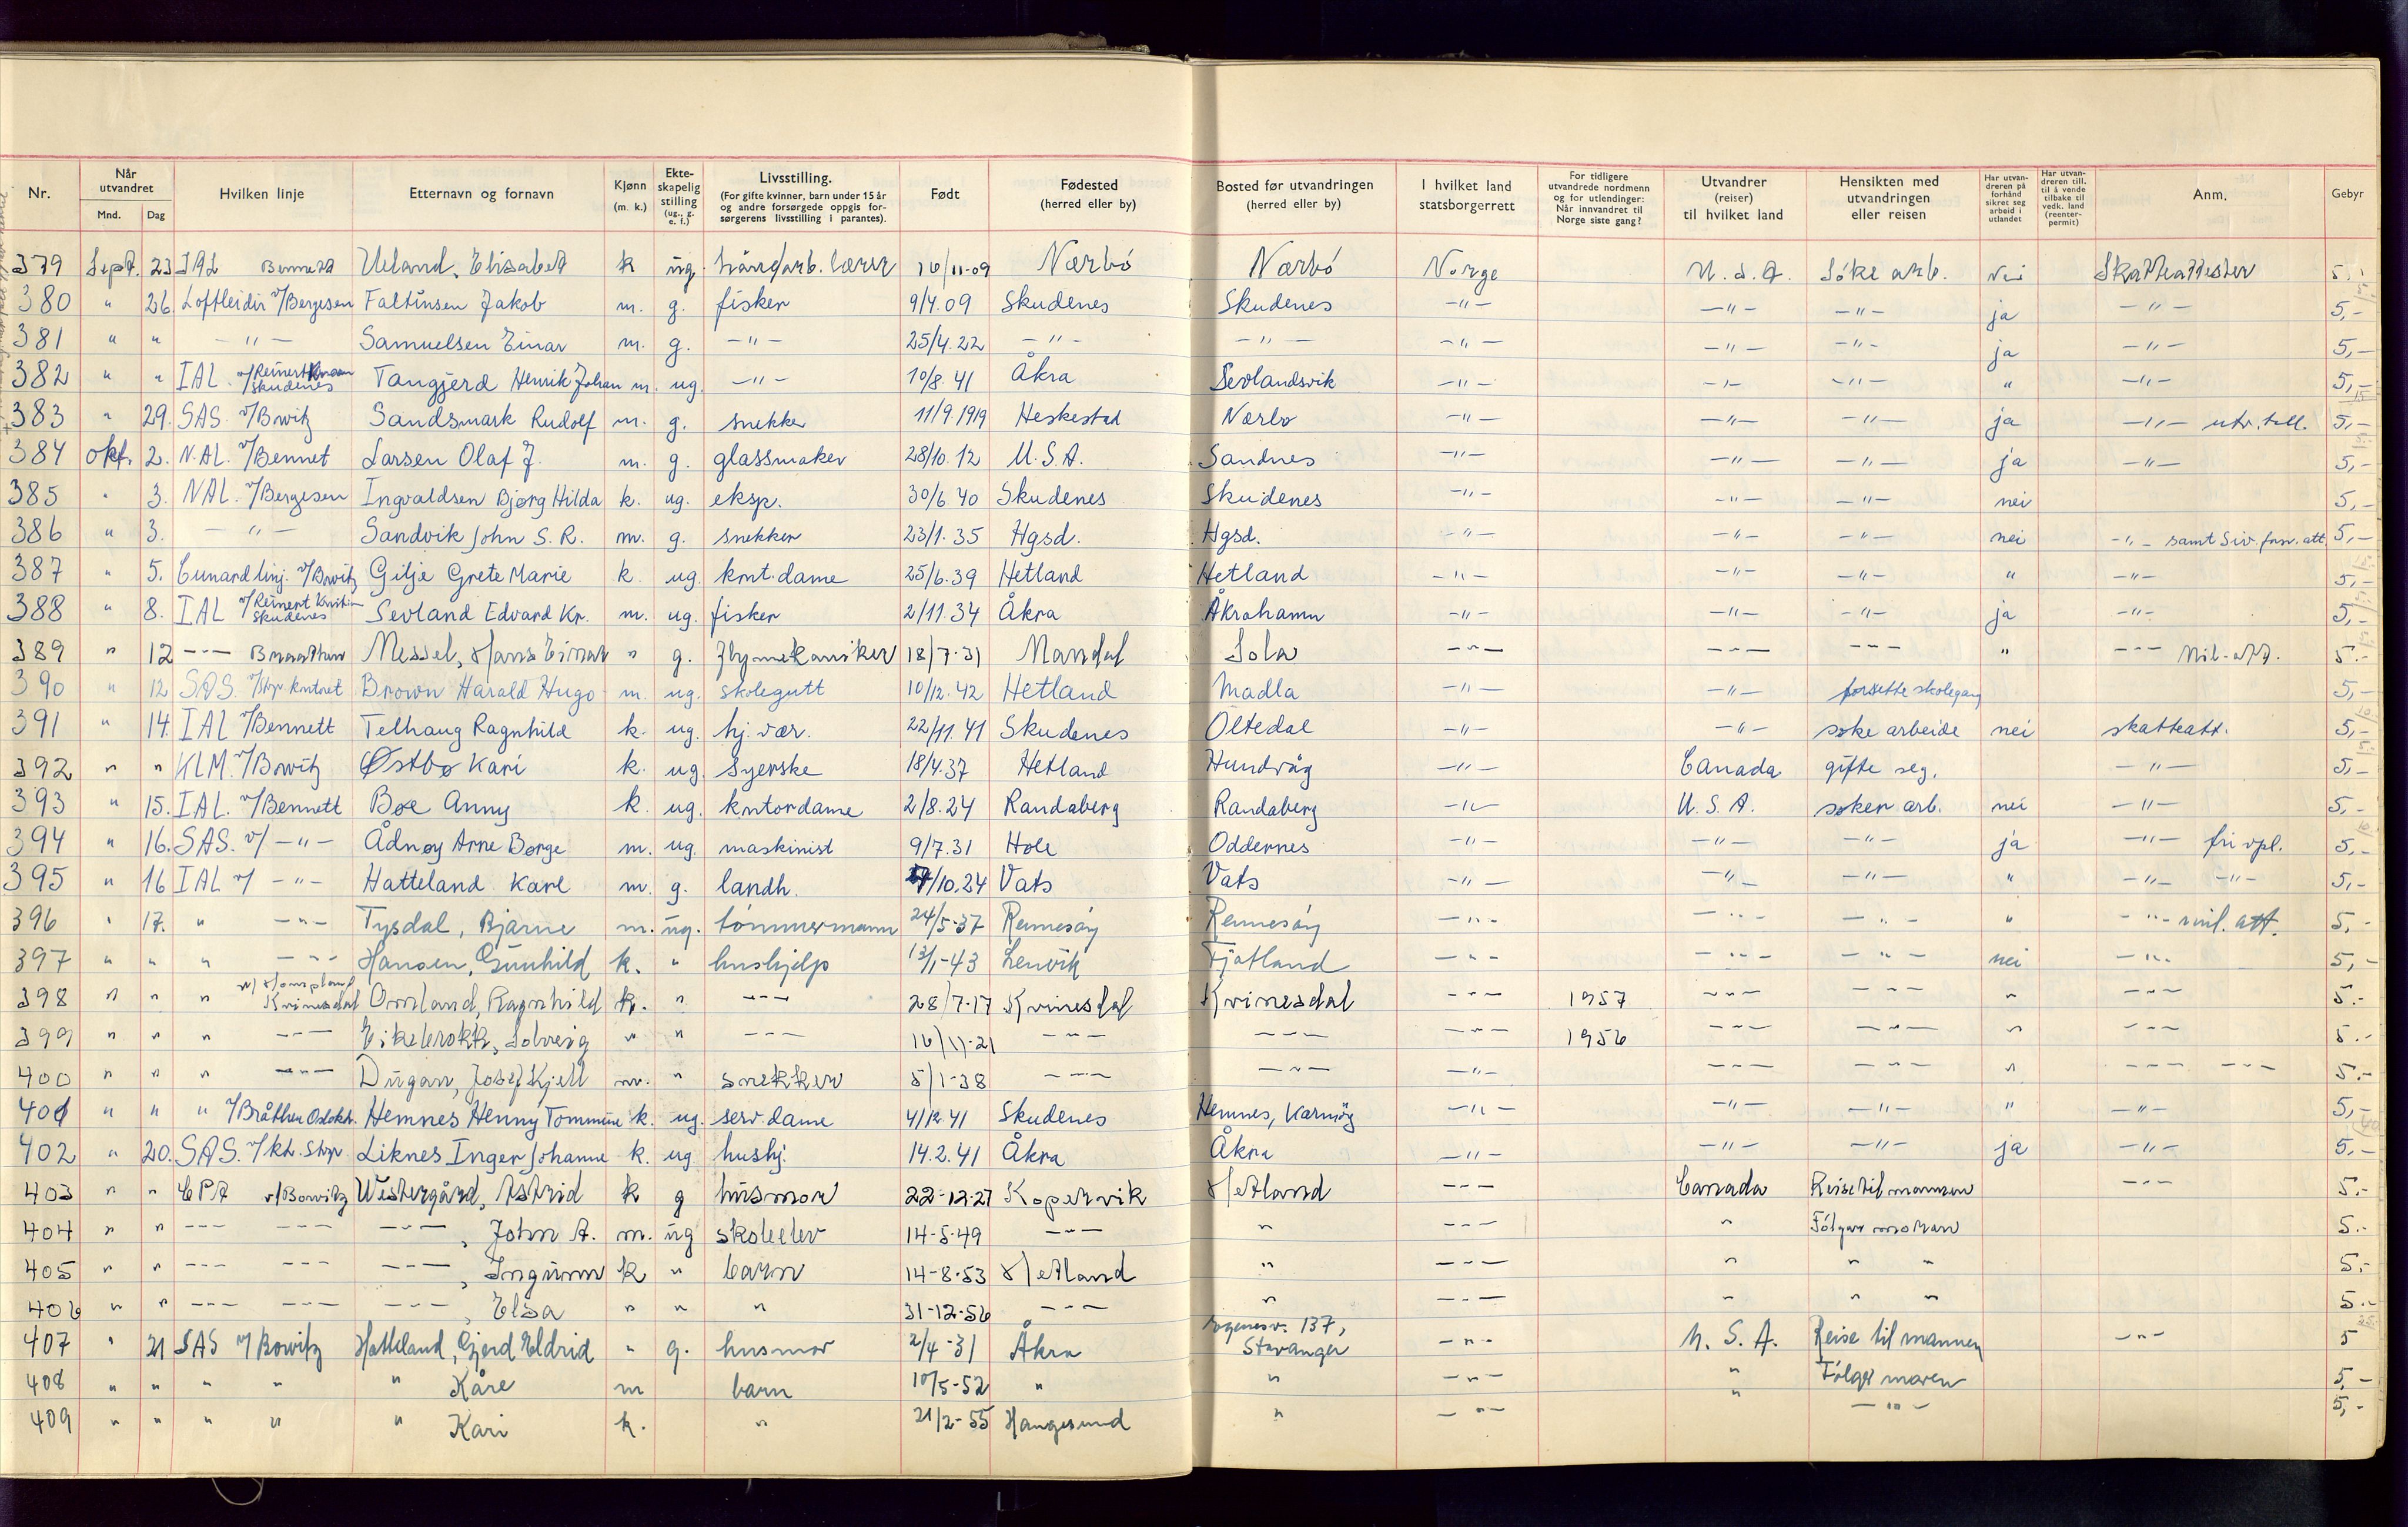 Nr. | Når utvandret Mnd. Dag | Hvilken linje | Etternavn og fornavn | Kjønn (m. k.) | Ekteskapelig stilling (ug., g. e. f.) | Livsstilling. (For gifte kvinner, barn under 15 år og andre forsørgede oppgis forsørgerens livsstilling i parantes). | Født | Fødested (herred eller by) | Bosted før utvandringen (herred eller by) | I hvilket land statsborgerrett | For tidligere utvandrede nordmenn og for utlendinger: Når innvandret til Norge siste gang? | Utvandrer (reiser) til hvilket land | Hensikten med utvandringen eller reisen | Har utvandreren på forhånd sikret seg arbeid i utlandet | Har utvandreren till. til å vende tilbake til vedk. land (reenterpermit) | Anm. | Gebyr
379 Sept. 23 IAL Bennett Ueland, Elisabet k ug. håndarb. lærer 16/11-09 Nærbó Nærbó Norge U.S.A. Sóke arb. Nei Skatteattester 5.-
380 " 26. Loftleidir v/Bergesen Faltinsen Jakob m. g. fisker 9/4.09 Skudenes Skudenes -"- -"- -"- ja -"- 5,-
381 " " -"- Samuelsen Einar m. g. -"- 25/4.22 -"- -"- -"- -"- -"- ja -"- 5,-
382 " " IAL. v/Reinert Skudenes Tangjerd Henrik Johan m. ug. -"- 10/8.41 Åkra Sevlandsvik -"- -"- -"- " -"- 5,-
383 " 29. SAS. v/Bowitz Sandsmark Rudolf m. g. snekker 11/9.1919 Heskestad Nærbø -"- -"- -"- ja -"- utr.till. 5,-
384 okt. 2. N.AL. v/Bennet Larsen Olaf J. m. g. glassmaker 28/10.12 U.S.A. Sandnes -"- -"- -"- ja -"- 5,-
385 " 3. NAL. v/Bergesen Ingvaldsen Bjørg Hilda k. ug. eksp. 30/6.40 Skudenes Skudenes -"- -"- -"- nei 5,-
386 " 3. -"- Sandvik John S. R. m. g. snekker 23/1.35 Hgsd. Hgsd. -"- -"- -"- nei -"- samt Siv. forsv. att. 5,-
387 " 5. Cunard linj. v/Bowitz Gilje Grete Marie k. ug. knt.dame 25/6.39 Hetland Hetland -"- -"- -"- " -"- 5,-
388 " 8. IAL v/Reinert Skudenes Sevland Edvard Kr. m. ug. fisker 2/11.34 Åkra Åkrahamn -"- -"- -"- ja -"- 5,-
389 " 12 -"- Braathen Messel, Hans Einar " g. flymekaniker 18/7-31 Mandal Sola -"- -"- -"- " -"- Mil-att. 5.-
390 " 12 SAS. v/Stvgr kontoret Brown Harald Hugo m. ug. skolegutt 10/12.42 Hetland Madla -"- -"- forsette skolegang 5,-
391 " 14. IAL v/Bennett Telhaug Ragnhild k. ug. hj. vær. 22/11.41 Skudenes Oltedal -"- -"- søke arbeide nei skatteatt. 5,-
392 " " KLM. v/Bowitz Østbø Kari k. ug. syerske 18/4.37 Hetland Hundvåg -"- Canada gifte seg. -"- 5,-
393 " 15. IAL. v/Bennett Bøe Anny k. ug. kntordame 2/8.24 Randaberg Randaberg -"- U.S.A. søker arb. nei -"- 5,-
394 " 16. SAS. v/ -"- Ådnøy Arne Børge m. ug. maskinist 9/7.31 Hole Oddernes -"- -"- -"- ja -"- fri vpl. 5,-
395 " 16 IAL v/ -"- Hatteland Karl m. g. landh. /10.24 Vats Vats -"- -"- -"- " -"- -"- 5,-
396 " 17. " -"- Tysdal, Bjarne m. ug. tómmermann 24/5-37 Rennesóy Rennesóy -"- -"- -"- " -"- mil. att. 5,-
397 " " " -"- Hansen, Gunhild k. " hushjelp 13/1-43 Lenvik Fjotland -"- -"- -"- nei -"- 5,-
398 " " " v/Kvinesdal Omland, Ragnhild k. " -"- 28/7-17 Kvinesdal Kvinesdal -"- 1957 -"- -"- " -"- 5.-
399 " " " -"- Eikebrokk, Solveig " " -"- 16/11-21 -"- -"- -"- 1956 -"- -"- " -"- 5.-
400 " " " -"- Dugan, Josef Kjell m. " snekker 5/1-38 -"- -"- -"- -"- -"- " -"- -"- 5.-
401 " " " v/Bråthen Hemnes Henny Tommine k. ug. serv.dame 4/12.41 Skudenes Hemnes, Karmøy -"- -"- -"- " -"- 5,-
402 " 20. SAS. v/kt. Stvgr Liknes Inger Johanne k. ug. hushj. 14.2.41 Åkra Åkra -"- -"- -"- ja -"- 5,-
403 " " CPA v/Bowitz Westergård, Astrid k g husmor 22-12-27 Kopervik Hetland -"- Canada Reise til mannen -"- 5.-
404 " " -"- -"- -"-, John A. m. ug skoleelev 14-5-49 -"- " -"- " Fólger moren 5.-
405 " " -"- -"- -"-, Ingunn k " barn 14-8-53 Hetland " -"- " " " 5.-
406 " " -"- -"- -"-, Elsa " " " 31-12-56 -"- " -"- " " " 5.-
407 " 21 SAS v/Bowitz Hatteland, Gjerd Eldrid " g. husmor 2/4-31 Åkra 137, Stavanger -"- U.S.A. Reise til mannen -"- 5
408 " " " " " Kåre m barn 10/5-52 " " -"- " Fólger moren 5,-
409 " " " " " Kari k. " 21/2-55 Haugesund " -"- " -"- 5,-